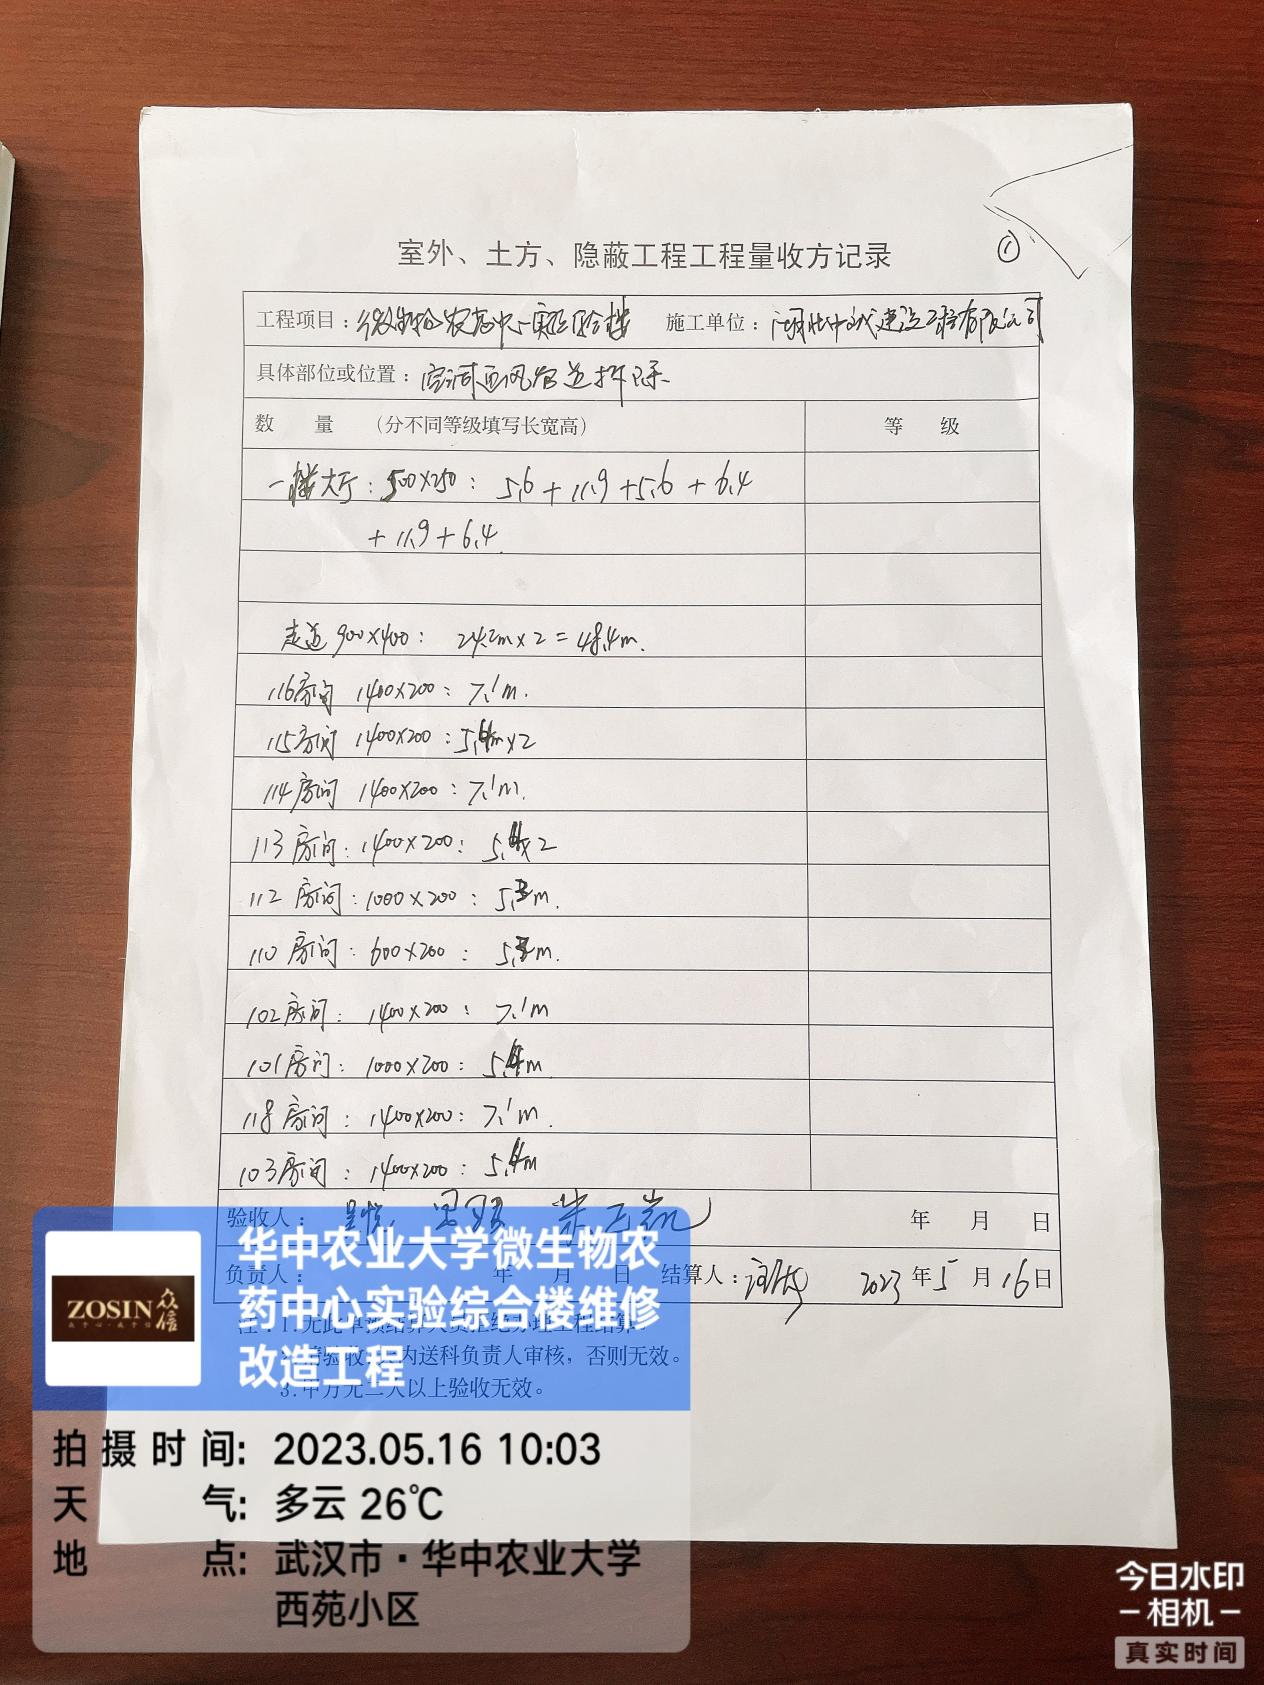 ①
室外、土方、隐蔽工程工程量收方记录
工程项目：微生物农药中心实验综合楼 施工单位：建设工程有限公司
具体部位或位置：空调通风管道拆除
数 量 （分不同等级填写长宽高） 等 级
一楼大厅：500×250：5.6+11.9+5.6+6.4
+11.9+6.4
走道900×400：24.2m×2=48.4m.
116房间 1400×200：7.1m.
115房间 1400×200：5.4m×2
114房间 1400×200：7.1m.
113房间：1400×200：×2
112房间：1000×200：m.
110房间：600×200：m.
102房间：1400×200：7.1m
101房间：1000×200：5.4m
118房间：1400×200：7.1m.
103房间：1400×200：5.4m
验收人： 年 月 日
负责人： 年 月 日 结算人： 2023年5月16日
注：1.无此单预结算人员拒绝办理工程结算
验收 内送科负责人审核，否则无效。
3.甲方无二人以上验收无效。
ZOSIN众信
华中农业大学微生物农
药中心实验综合楼维修
改造工程
拍摄时间：2023.05.16 10:03
天气：多云 26℃
地点：武汉市·华中农业大学
西苑小区
今日水印
-相机-
真实时间